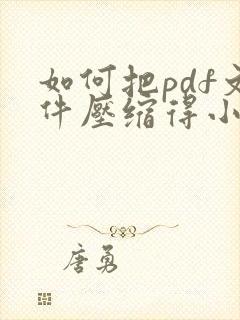 如何把pdf文
件壓缩得小
唐勇